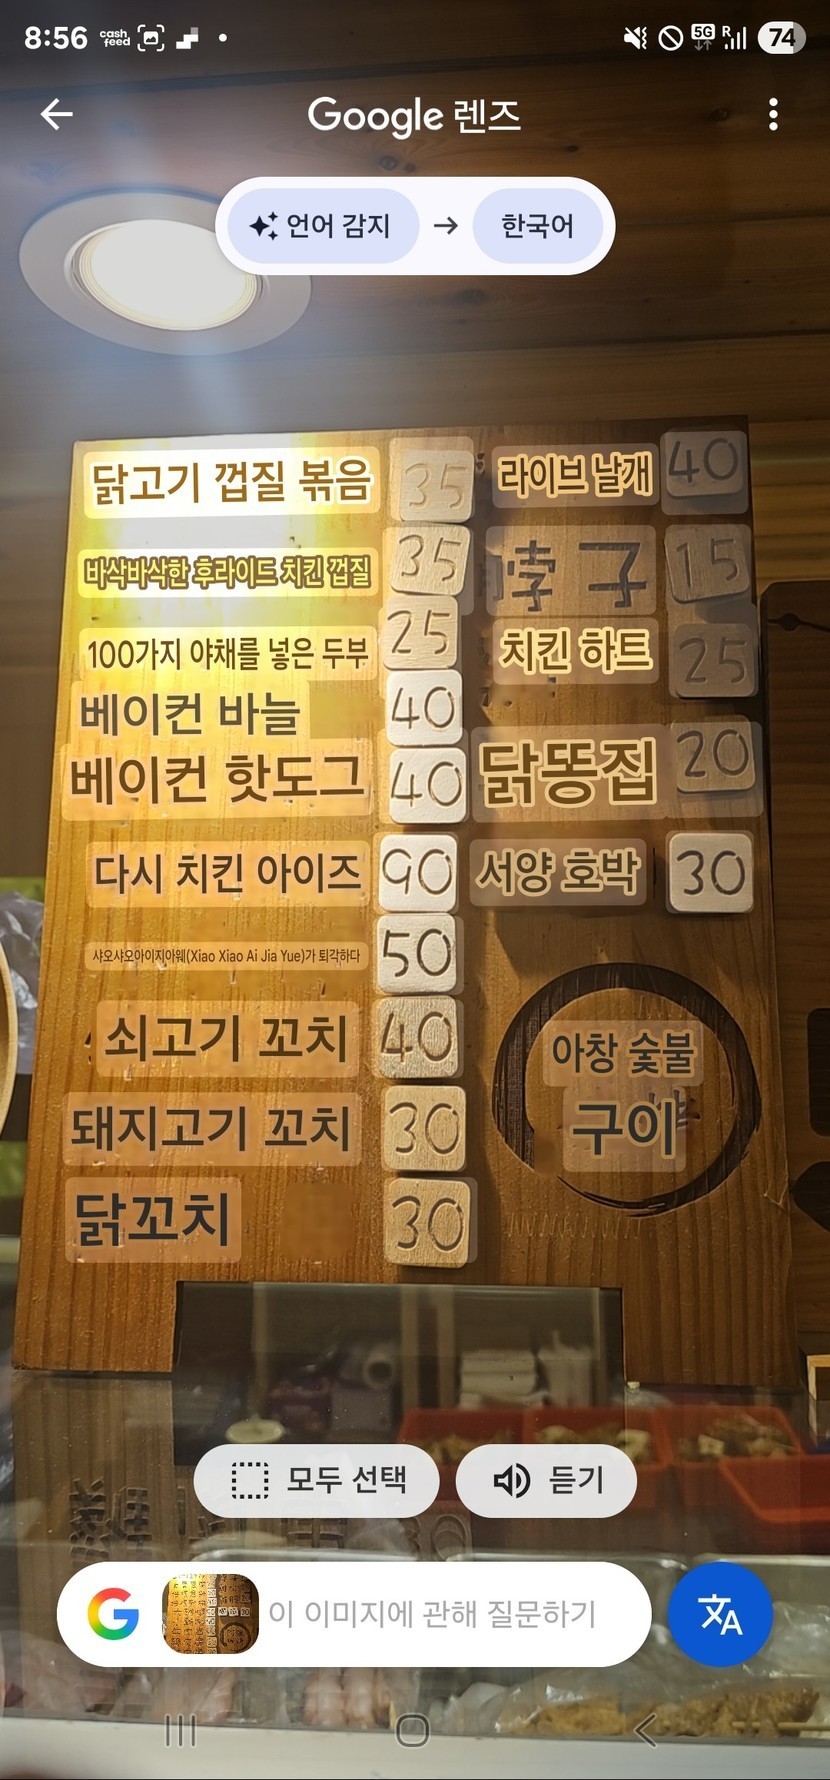 8:56 cash feed 5G R 74
Google 렌즈
언어 감지 → 한국어
닭고기 껍질 볶음 35
바삭바삭한 후라이드 치킨 껍질 35
100가지 야채를 넣은 두부 25
베이컨 바늘 40
베이컨 핫도그 40
다시 치킨 아이즈 90
샤오샤오아이지아웨(Xiao Xiao Ai Jia Yue)가 퇴각하다 50
쇠고기 꼬치 40
돼지고기 꼬치 30
닭꼬치 30
라이브 날개 40
脖子 15
치킨 하트 25
닭똥집 20
서양 호박 30
아창 숯불
구이
모두 선택
듣기
이 이미지에 관해 질문하기